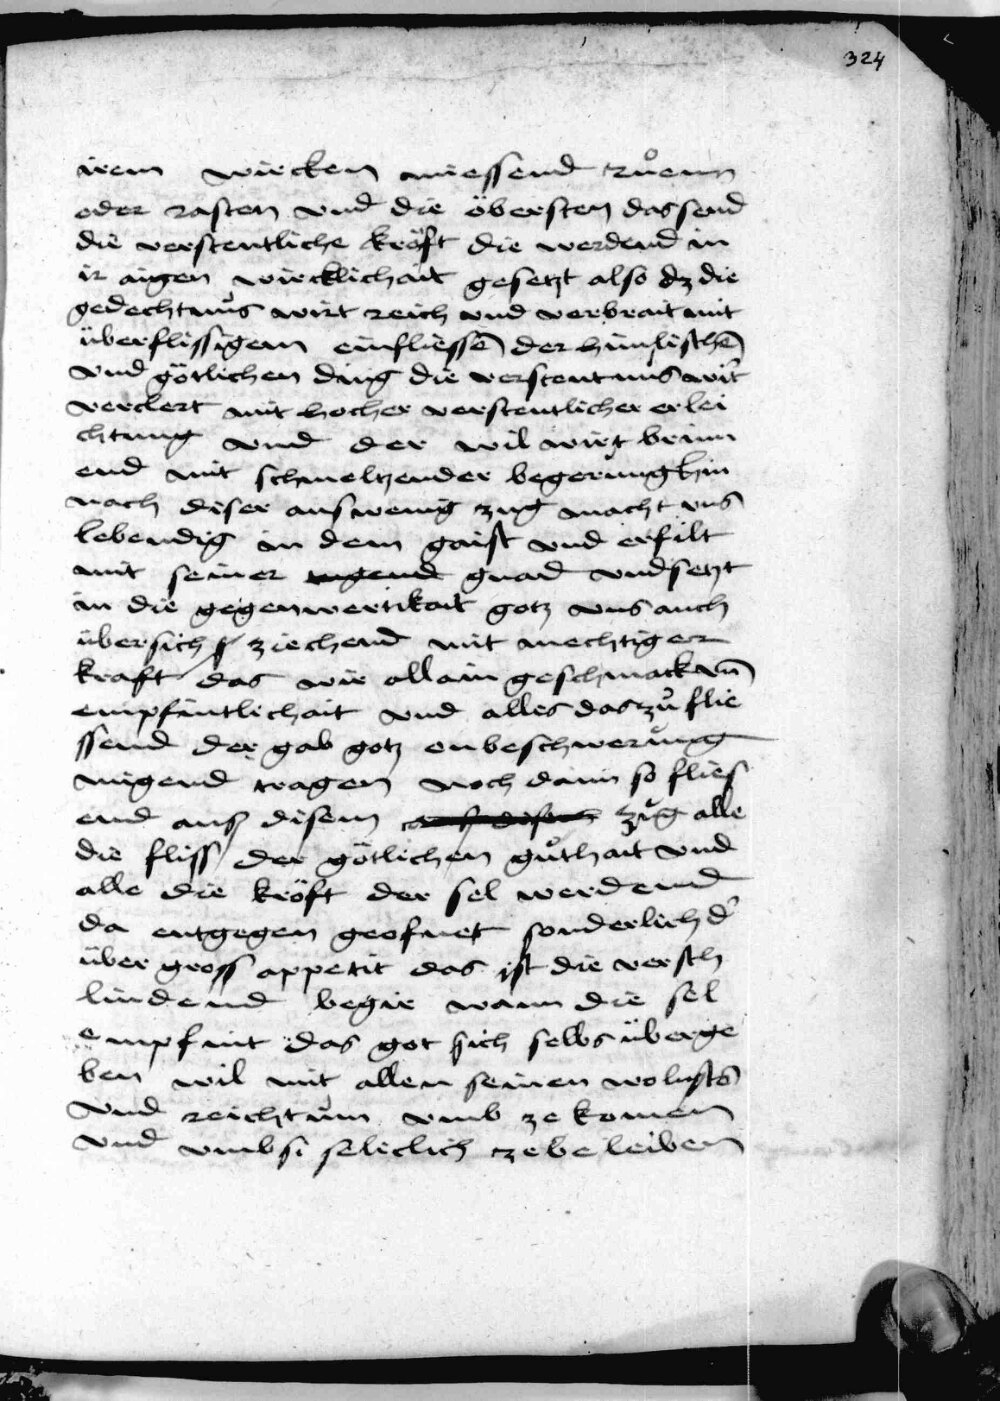 324
irem wircken niessend růenn
oder rasten vnd die öbersten das send
die verstentliche kröft die werdend in
ir aigen wircklichait gesetzt also dz die
gedechtnus wirt reich vnd verbrait mit
überflissigem einfliessē der himlischē
vnd götlichen ding die verstentnus wirt
verclert mit hocher verstentlicher erlei
chtung vnd der wil wirt brinn
end mit schmeltzender begerung hin
nach diser auswenig zug macht vns
lebendig in dem gaist vnd erfilt
mit seiner tugend gnad vnd setzt
in die gegenwertikait gotz vns auch
übersich ziechend mit mechtiger
kraft das wir allain geschmack vn̄
empfintlichait vnd alles das zů flie
ssend der gab gotz on beschwerung
migend tragen noch dann so flies
end aus disem zug alle
die fliss der götlichen gůthait vnd
alle die kröft der sel werdend
da entgegen geofnet sonderlich d'
über gross appetit das ist die versch
lindend begir wann die sel
empfint das got sich selbs überge
ben wil mit allen seinen wolusts
vnd reichtum vmb ze komen
vnd vmb si seliclich ze beleiben